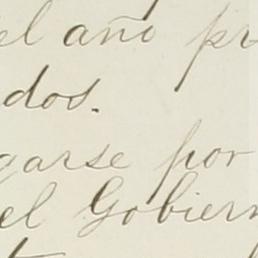 el año pr
dos.
garse por
el Gobiern